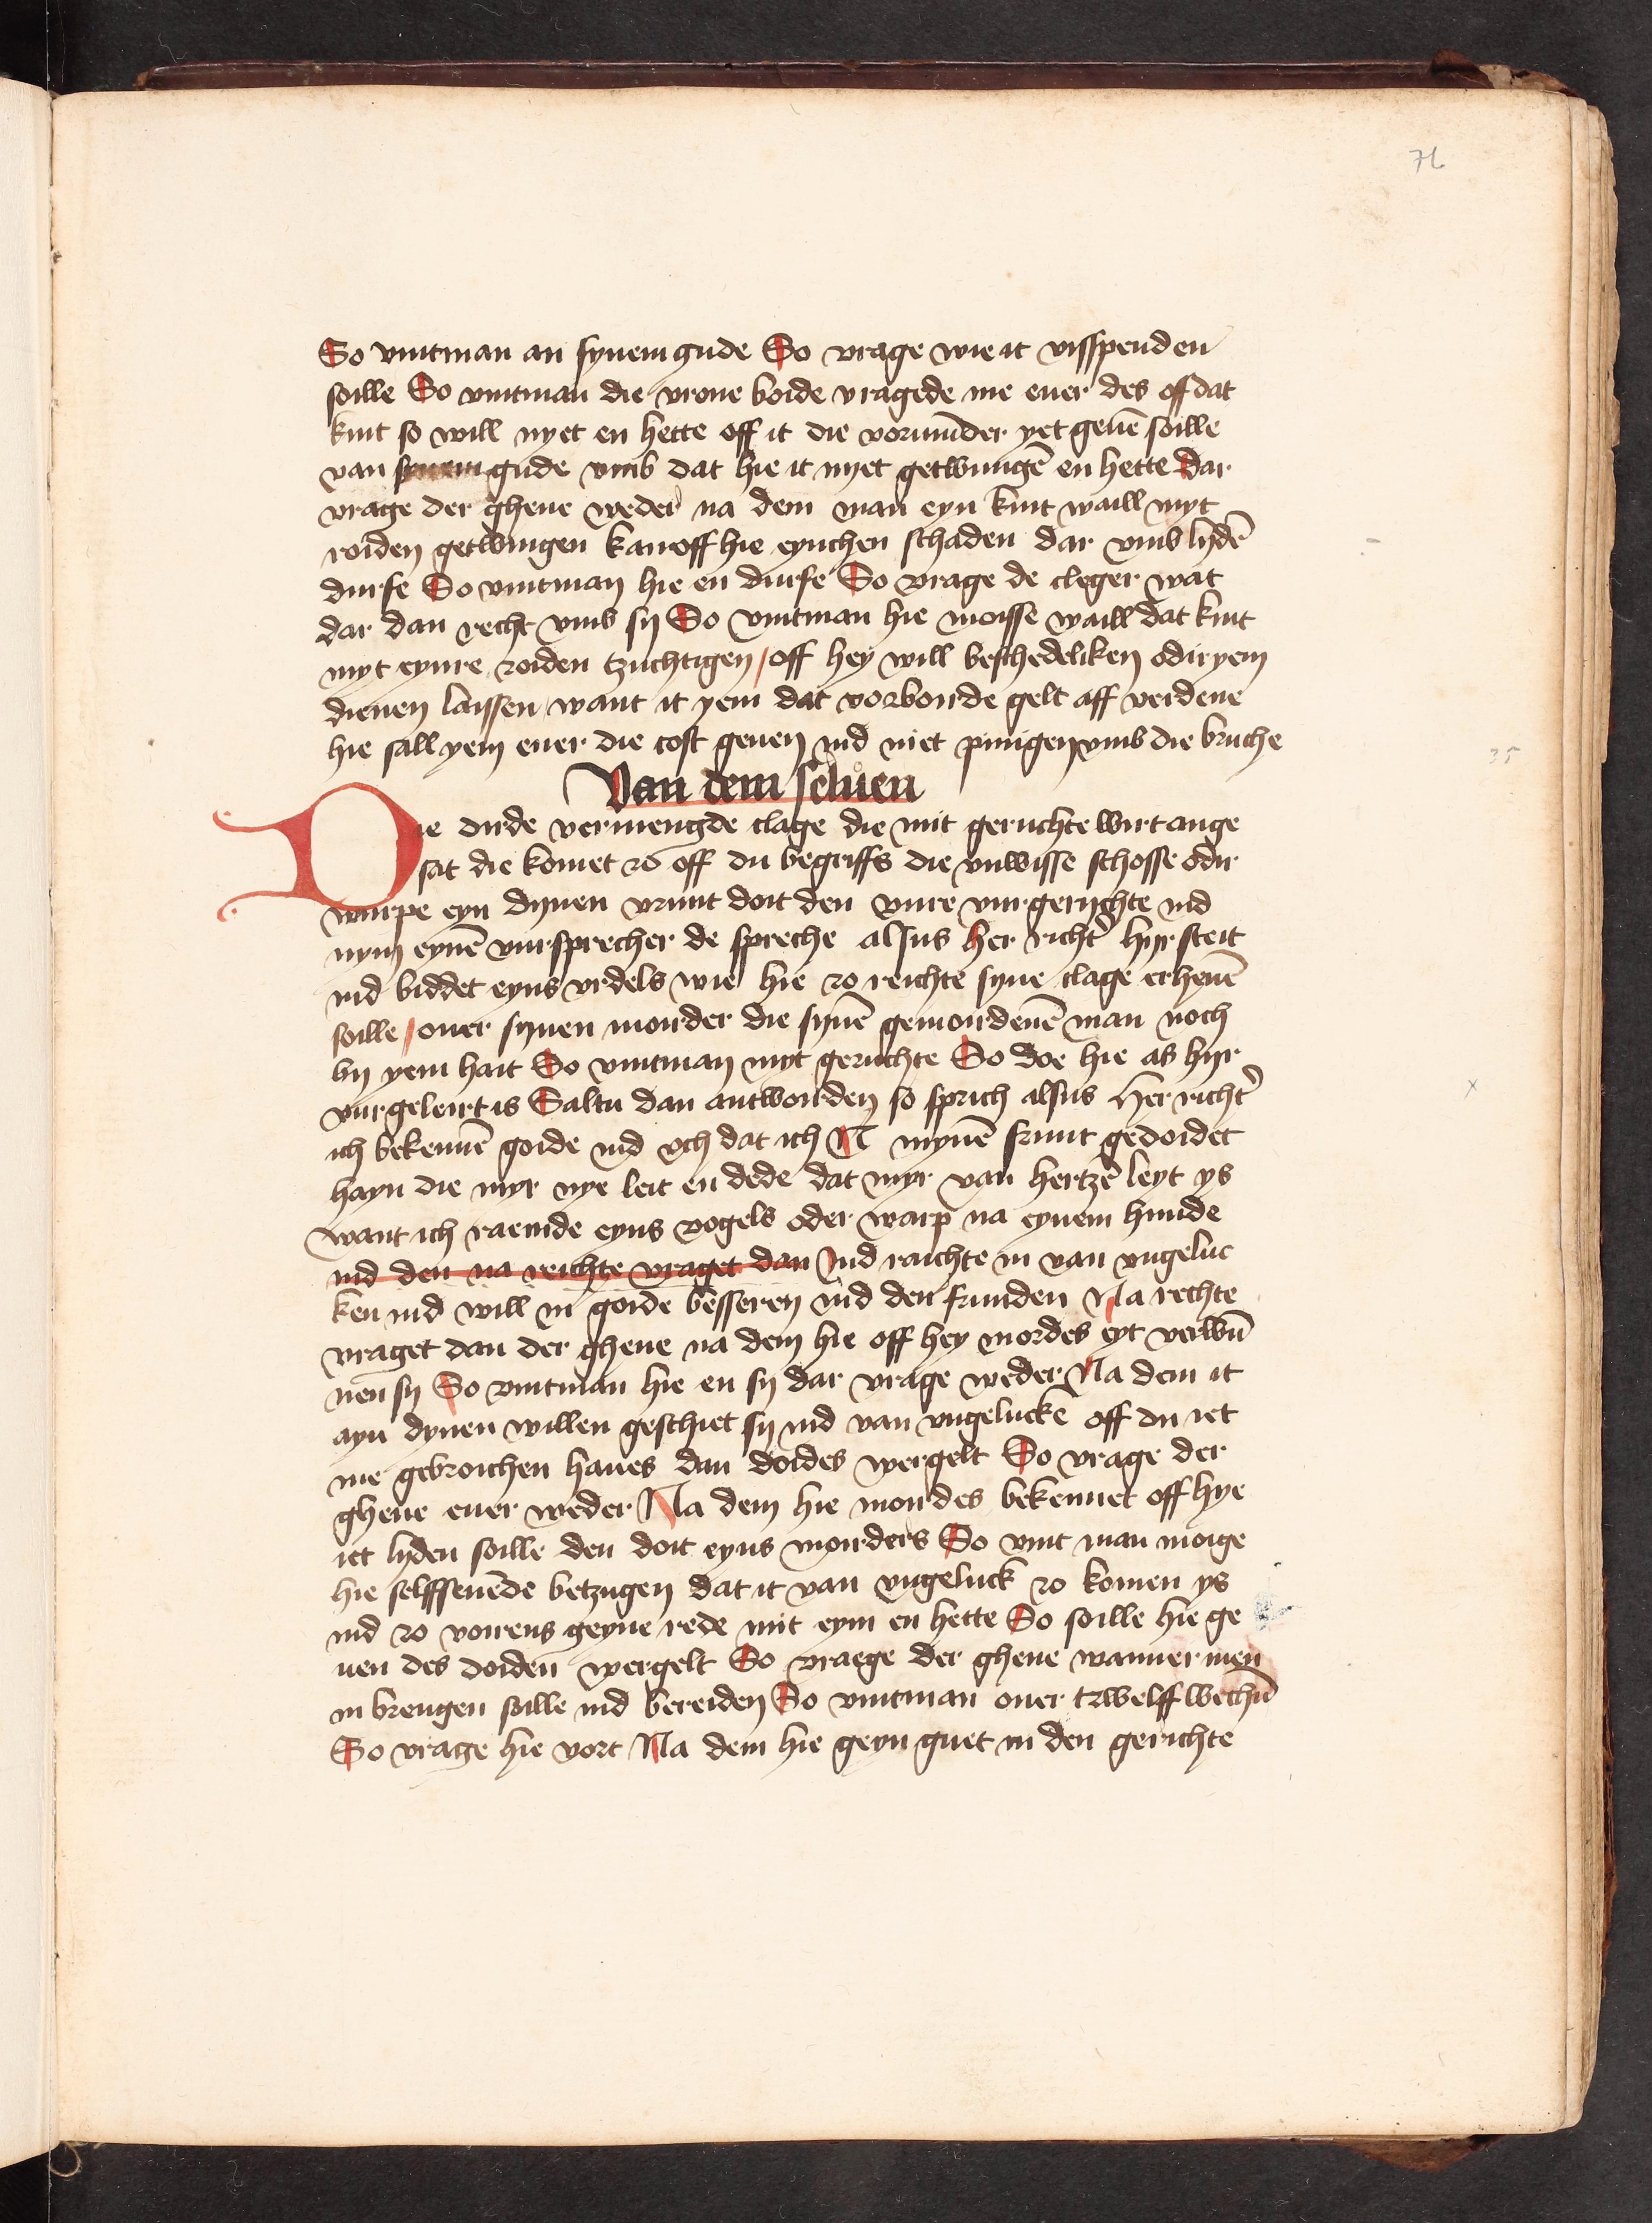 76
So vintman an synem gude So vrage wie it visspenden
soille So vintman die vrone boide vragede me ener des off dat
kint so will nyet en hette off it die vormunder yet geuē soille
van synem gude vmb dat hie it nyet getwungē en hette dar
vrage der ghene weder na dem man eyn kint waill myt
roiden getwingen kan off hie eynchen schaden dar vmb lydē
durfe So vintman hie en durfe So vrage de cleger wat
dar dan recht vmb sy So vintman hie moisse waill dat kint
myt eynre roiden tzuchtigen / off hey will beschedeliken odir yem
dienen laissen want it yem dat vorbonde gelt aff verdene
hie sall yem euer die cost geuen ind niet pinigen vmb die bruche
35
Van dem seluen
Die dirde vermengde clage die mit geruchte wirt ange
sat die komet zo off du begriffs die vnwisse schosse odir
wurpe eyn dynen vrunt doit den vure vur gerychte ind
nym eynē vursprecher de spreche alsus her richt' hyr steit
ind biddet eyns vrdels wie hie zo reichte syne clage erheuē
soille / ouer synen morder die synē gemordenē man noch
by yem hait So vintman myt geruchte So doe hie as hyr
vur geleirt is Saltu dan antworden so sprich alsus Her richt'
x
ich bekennē goide ind vch dat ich N mynē frunt gedoidet
hayn die myr nye leit en dede dat myr van hertzē leyt ys
want ich raemde eyns vogels oder warp na eynem hunde
ind den na reichte vraget dan Ind raichte in van vngeluc
ken ind will in goide besseren ind den frunden Na rechte
vraget dan der ghene na dem hie off hey mordes eyt verwū
nen sy So vintman hie en sy dar vrage weder Na dem it
ayn dynen willen geschiet sy ind van vngelucke off du iet
me gebroichen haues dan doides wergelt So vrage der
ghene euer weder Na dem hie mordes bekennet off hye
iet lyden soille den doit eyns morders So vint man moige
hie selffseuende betzugen dat it van vngeluck zo komen ys
ind zo vorens geyne rede mit eym en hette So soille hie ge
uen des doiden wergelt So vraege der ghene wanner men
in brengen solle ind bereiden So vintman ouer tzwelff wechū
So vrage hie vort Na dem hie geyn guet in den gerichte